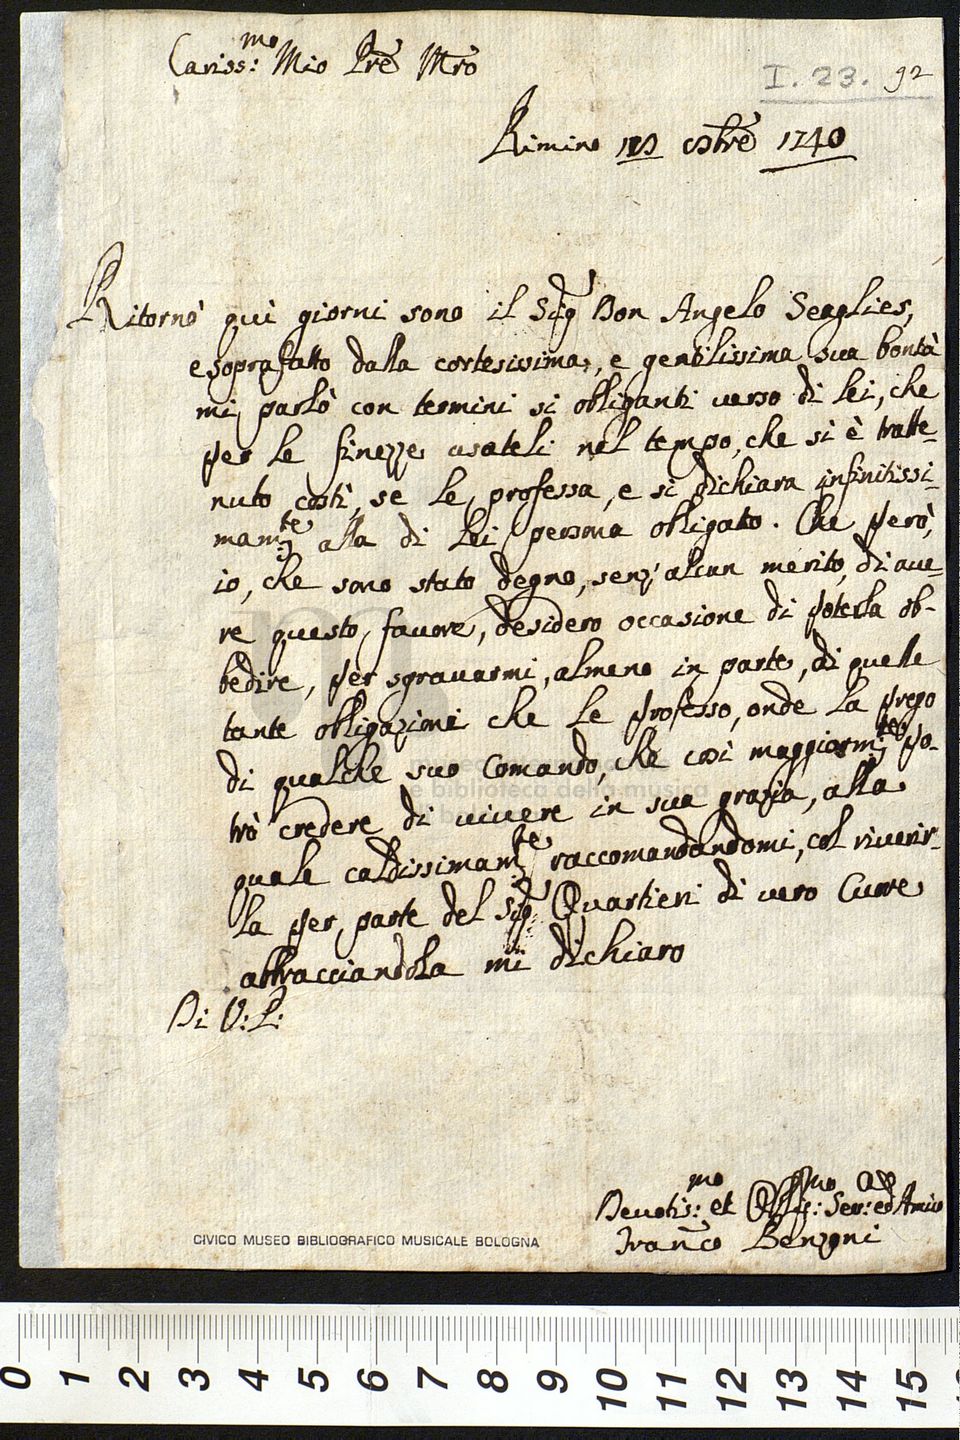 Cariss:mo Mio Pre Mro
I. 23. 92
Rimino ottre 1740
Ritornò quì giorni sono il Sig Don Angelo Seaglies,
e soprafatto dalla cortesissima, e gentilissima sua bontà
mi parlò con termini si obliganti verso di lei, che
per le finezze usateli nel tempo, che si è tratte-
nuto costì, se le professa, e si dichiara infinitissi-
mamte alla di Lei persona obligato. Che però,
io, che sono stato degno, senz'alcun merito, di ave-
re questo favore, desidero occasione di poterla ob-
bedire, per sgravarmi, almeno in parte, di quelle
tante obligazioni che le professo, onde la prego
di qualche suo Comando, che così maggiormte po-
trò credere di vivere in sua grazia, alla
quale caldissimamte raccomandandomi, col riverir-
la per parte del Sig Quartieri di vero Cuore
abbracciandola mi dichiaro
Di V: P:
Devotis:mo et Obblig:mo Ser: ed Amico
Franco Benzoni
CIVICO MUSEO BIBLIOGRAFICO MUSICALE BOLOGNA
e biblioteca della musica
0 1 2 3 4 5 6 7 8 9 10 11 12 13 14 15